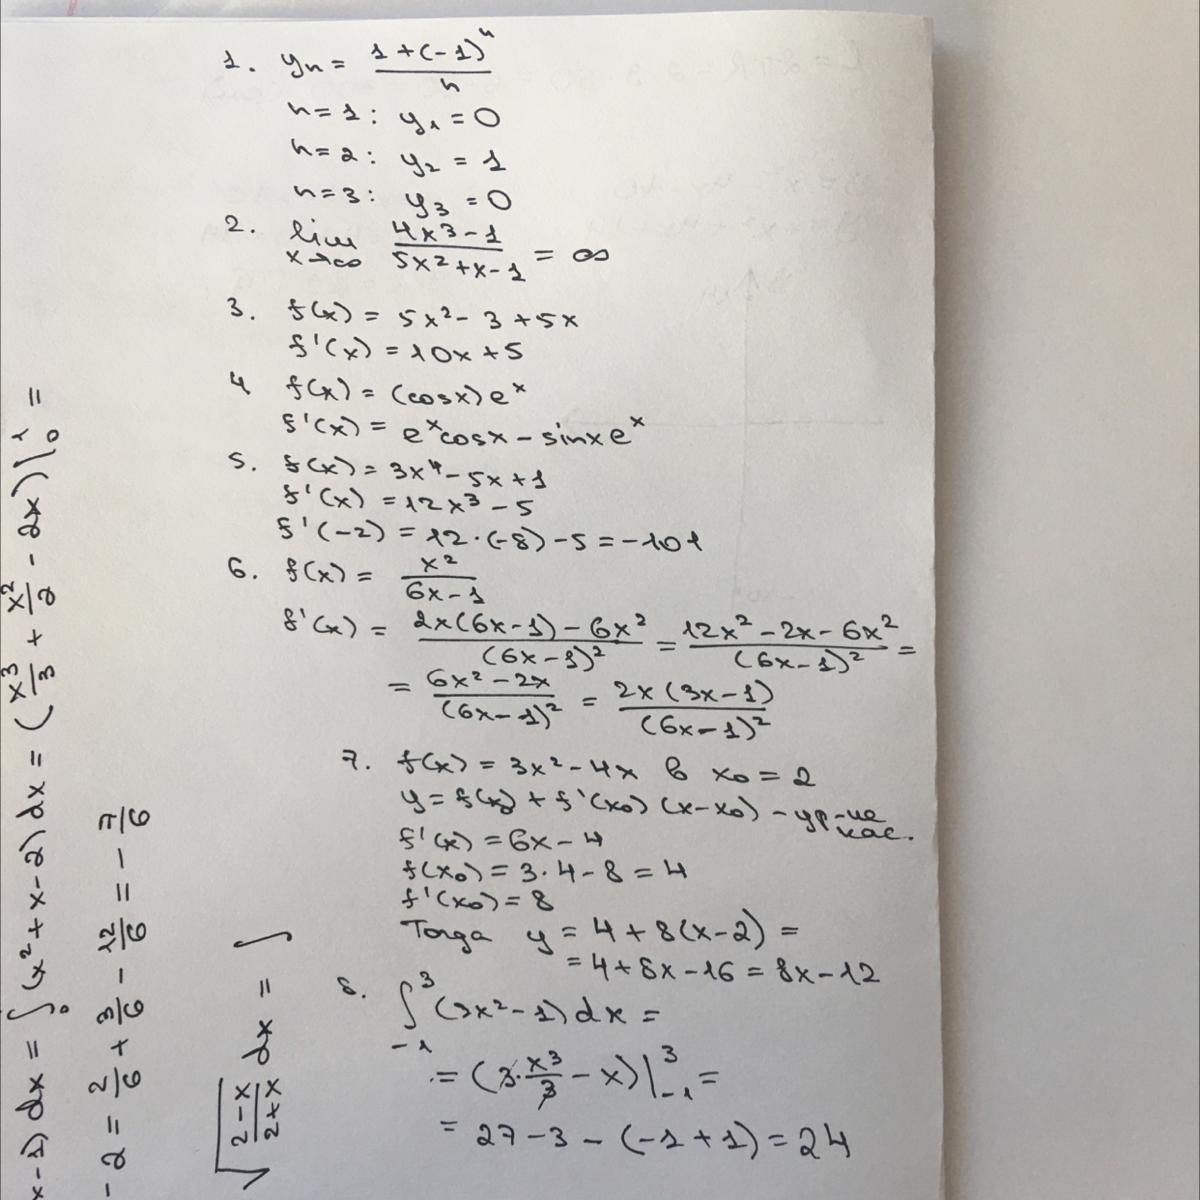 1. yₙ = (1+(-1)ⁿ)/n
n=1: y₁=0
n=2: y₂ = 1
n=3: y₃ =0
2. lim x→∞ (4x³-1)/(5x²+x-1) = ∞
3. f(x) = 5x²-3+5x
f'(x) =10x+5
4 f(x) = (cosx)eˣ
f'(x) = eˣcosx - sinxeˣ
5. f(x) = 3x⁴-5x+1
f'(x) =12x³-5
f'(-2) =12·(-8)-5=-101
6. f(x) = x²/(6x-1)
f'(x) = (2x(6x-1)-6x²)/(6x-1)² = (12x²-2x-6x²)/(6x-1)² =
= (6x²-2x)/(6x-1)² = (2x(3x-1))/(6x-1)²
7. f(x) = 3x²-4x в x₀=2
y= f(x₀)+f'(x₀)(x-x₀) - ур-ие кас.
f'(x)=6x-4
f(x₀)=3·4-8=4
f'(x₀)=8
Тогда y = 4+8(x-2) =
=4+8x-16=8x-12
8. ∫₋₁³ (3x²-1)dx =
= (3·x³/3 - x)|₋₁³ =
= 27-3-(-1+1)=24
x-2)dx = ∫₀¹ (x²+x-2)dx = (x³/3 + x²/2 - 2x)|₀¹ =
-2 = 2/6 + 3/6 - 12/6 = -7/6
√((2-x)/(2+x)) dx = ∫